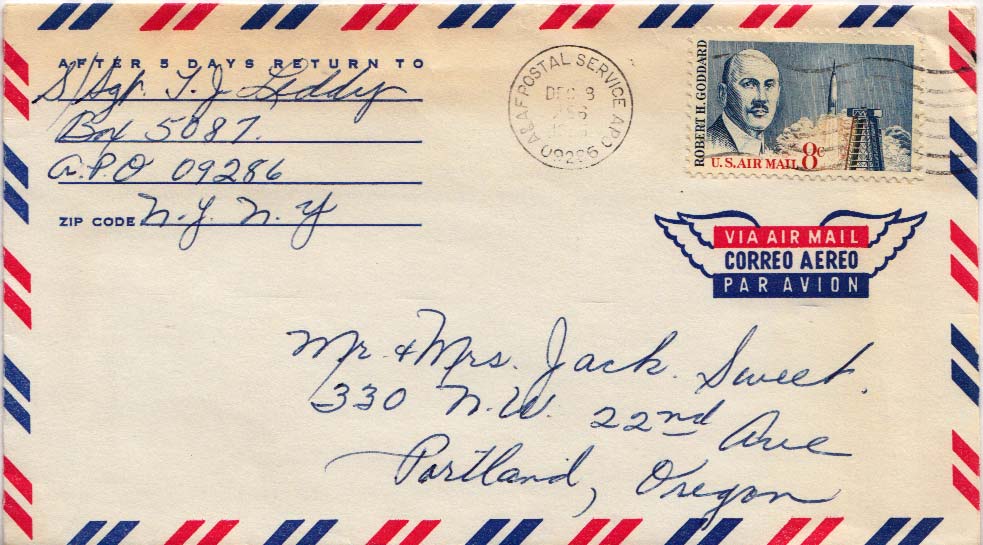 AFTER 5 DAYS RETURN TO
S/Sgt. T. J. Leddy
Box 5087.
A.P.O 09286
ZIP CODE N.Y. N.Y
A&AF POSTAL SERVICE APO
DEC 8
09286
ROBERT H. GODDARD
U.S. AIR MAIL 8c
VIA AIR MAIL
CORREO AEREO
PAR AVION
Mr. & Mrs. Jack. Sweet.
330 N.W. 22nd Ave
Portland, Oregon